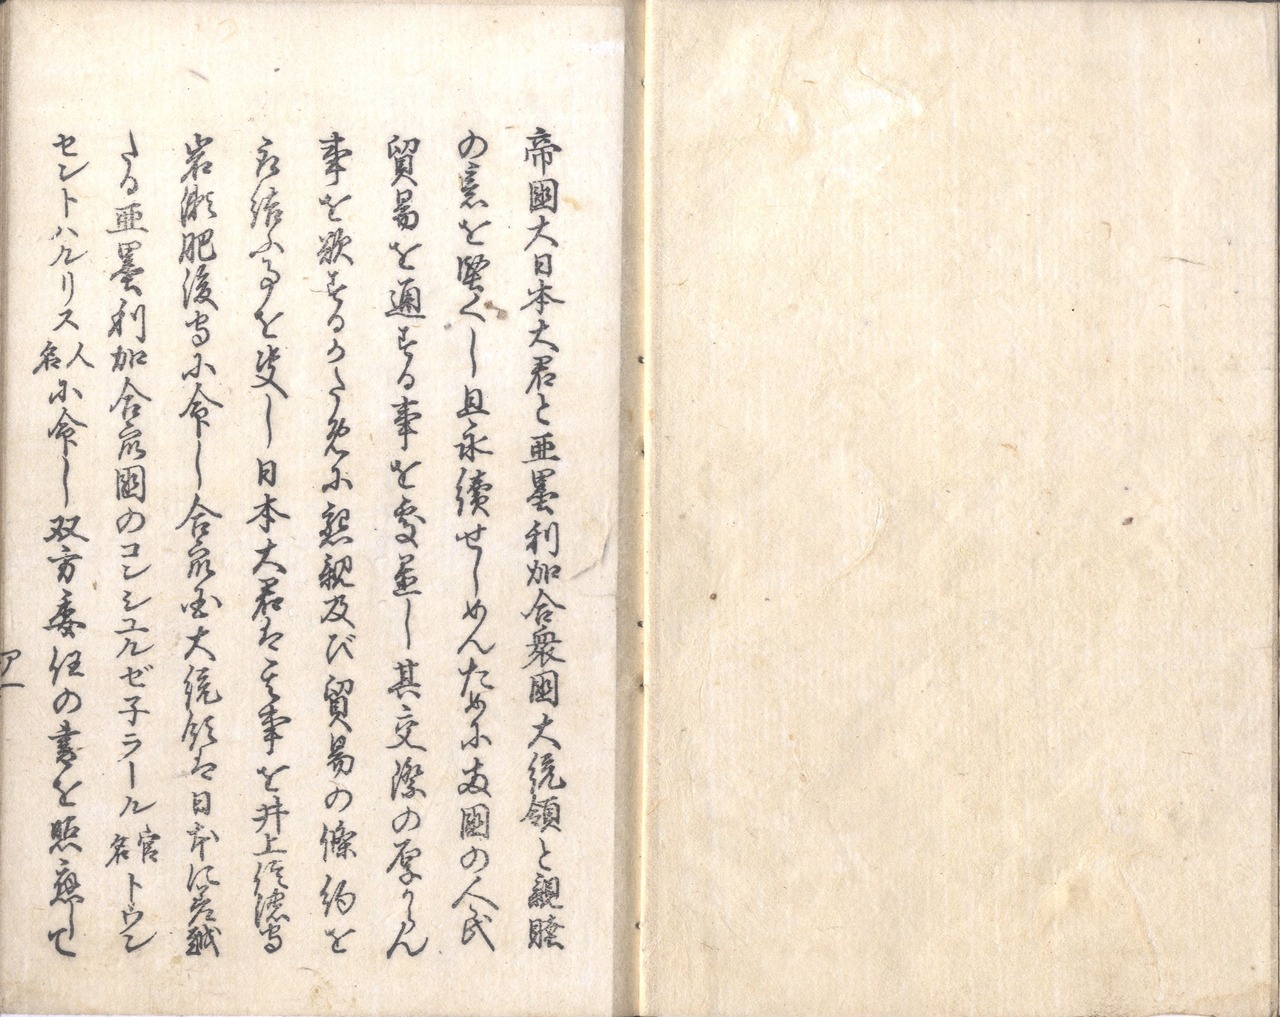 帝國大日本大君と亜墨利加合衆國大統領と親睦
の意を堅くし且永續せしめんために両國の人民
貿易を通する事を處置し其交際の厚からん
事を欲するかために懇親及び貿易の條約を
取結ふ事を決し日本大君は其事を井上信濃守
岩瀬肥後守に命し合衆国大統領は日本に差越
たる亜墨利加合衆國のコンシュルゼ子ラール官名トウン
セントハルリス人名に命し双方委任の書を照應して
ア一